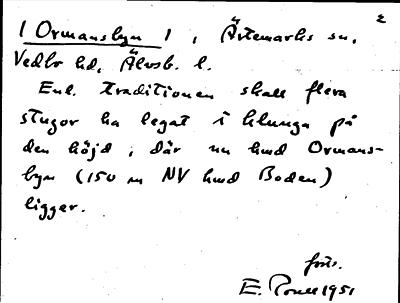 2
1 Ormansbyn 1, Ärtemarks sn,
Vedbo hd, Älvsb. l.
Enl. traditionen skall flera
stugor ha legat i klunga på
den höjd, där nu hmd Ormans-
byn (150 m NV hmd Boden)
ligger.
forts.
E. 1951